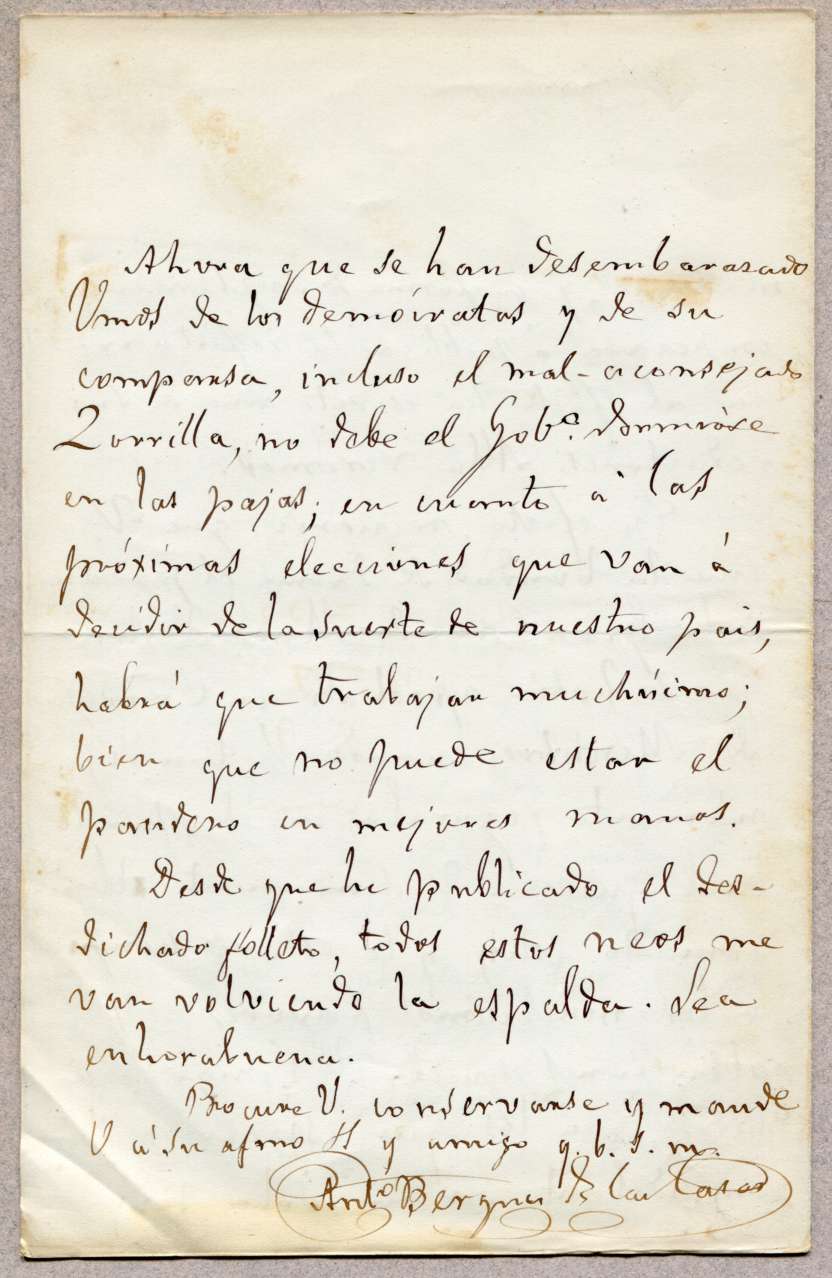 Ahora que se han desembarazado
Vmds de los demócratas y de su
comparsa, incluso el mal-aconsejado
Zorrilla, no debe el Gobº. dormirse
en las pajas; en cuanto á las
próximas elecciones que van á
decidir de la suerte de nuestro pais,
habrá que trabajar muchísimo;
bien que no puede estar el
pandero en mejores manos.
Desde que he publicado el des-
dichado folleto, todos estos neos me
van volviendo la espalda. Sea
enhorabuena.
Procure V. conservarse y mande
V á su afmo S y amigo q. b. s. m.
Antº Bergnes de las Casas